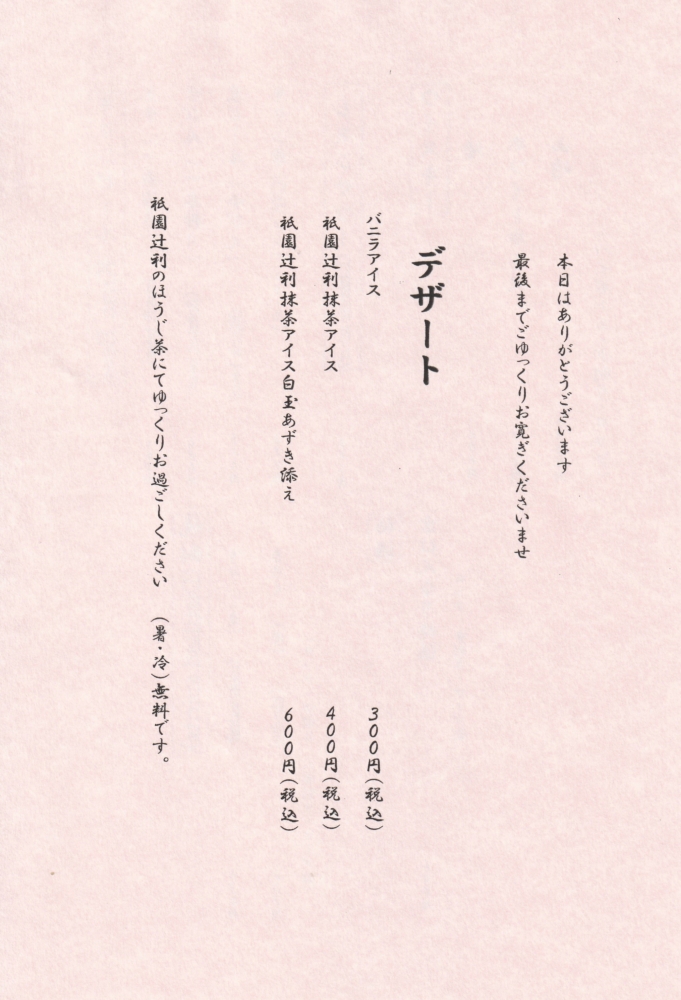 本日はありがとうございます
最後までごゆっくりお寛ぎくださいませ
デザート
バニラアイス 300円(税込)
祇園辻利抹茶アイス 400円(税込)
祇園辻利抹茶アイス白玉あずき添え 600円(税込)
祇園辻利のほうじ茶にてゆっくりお過ごしください (暑・冷)無料です。